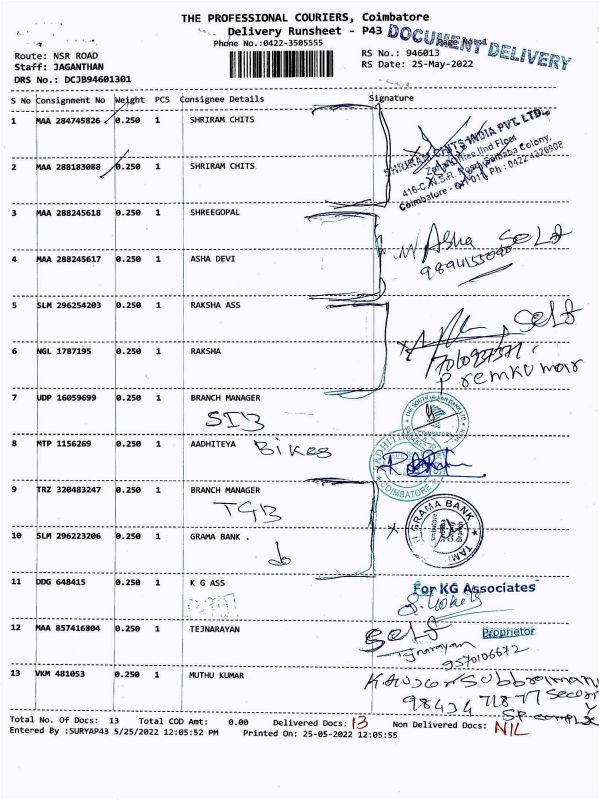 THE PROFESSIONAL COURIERS, Coimbatore
Delivery Runsheet - P43
Phone No.:0422-3505555
DOCUMENT DELIVERY
Route: NSR ROAD
Staff: JAGANTHAN
DRS No.: DCJB94601301
RS No.: 946013
RS Date: 25-May-2022
S No Consignment No Weight PCS Consignee Details Signature
1 MAA 284745826 0.250 1 SHRIRAM CHITS
SHRIRAM CHITS INDIA PVT. LTD.,
IInd Floor
416-C, N.S.R. Road, Saibaba Colony,
Coimbatore - 641 011 Ph : 0422-4326808
2 MAA 288183088 0.250 1 SHRIRAM CHITS
3 MAA 288245618 0.250 1 SHREEGOPAL
Asha Self
4 MAA 288245617 0.250 1 ASHA DEVI
5 SLM 296254203 0.250 1 RAKSHA ASS
Self
6 NGL 1787195 0.250 1 RAKSHA
Premkumar
7 UDP 16059699 0.250 1 BRANCH MANAGER
SIB
THE SOUTH INDIAN BANK LTD
8 MTP 1156269 0.250 1 AADHITEYA Bikes
COIMBATORE
9 TRZ 320483247 0.250 1 BRANCH MANAGER
TGB
GRAMA BANK
10 SLM 296223206 0.250 1 GRAMA BANK .
do
11 DDG 648415 0.250 1 K G ASS
For KG Associates
Proprietor
12 MAA 857416804 0.250 1 TEJNARAYAN
Self
Tejnarayan
9570106672
13 VKM 481053 0.250 1 MUTHU KUMAR
98434 71877 Security
S.P. complex
Total No. Of Docs: 13 Total COD Amt: 0.00 Delivered Docs: 13 Non Delivered Docs: NIL
Entered By :SURYAP43 5/25/2022 12:05:52 PM Printed On: 25-05-2022 12:05:55